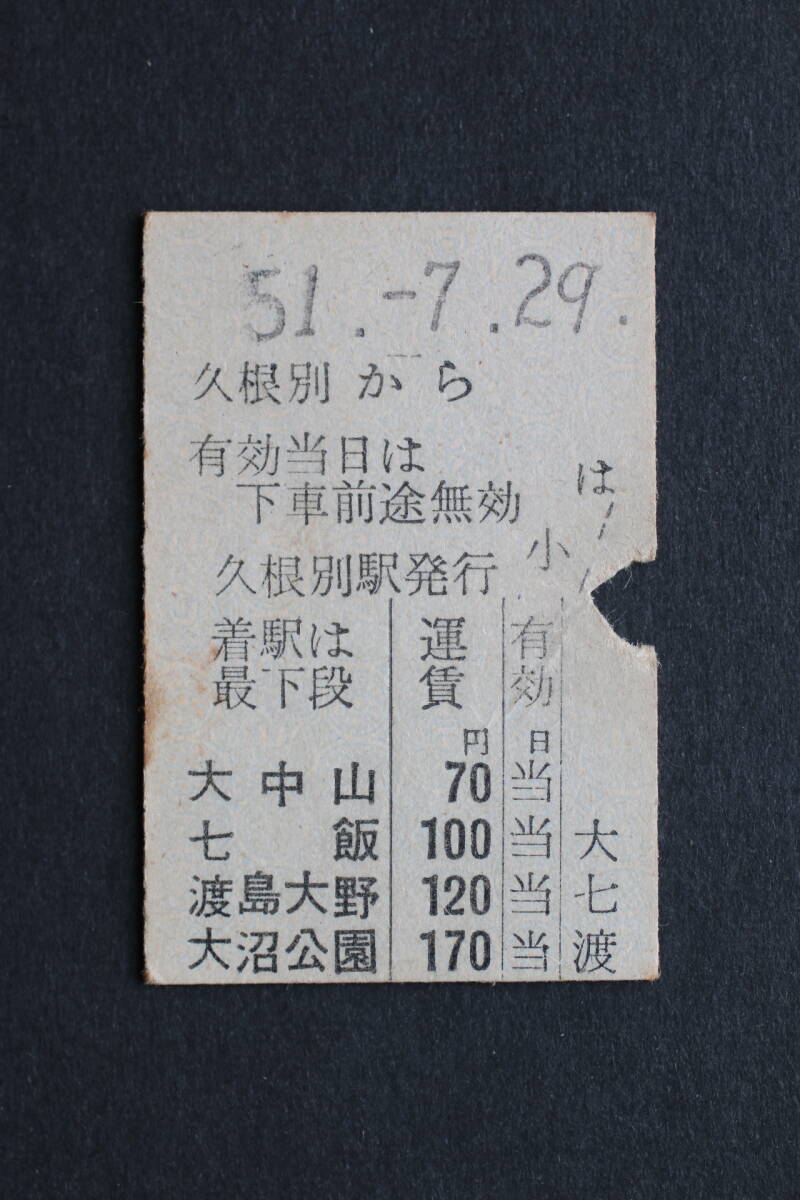 51.-7.29.
久根別から
有効当日は
下車前途無効
は
小
久根別駅発行
着駅は 運 有
最下段 賃 効
円 日
大中山 70 当
七飯 100 当 大
渡島大野 120 当 七
大沼公園 170 当 渡